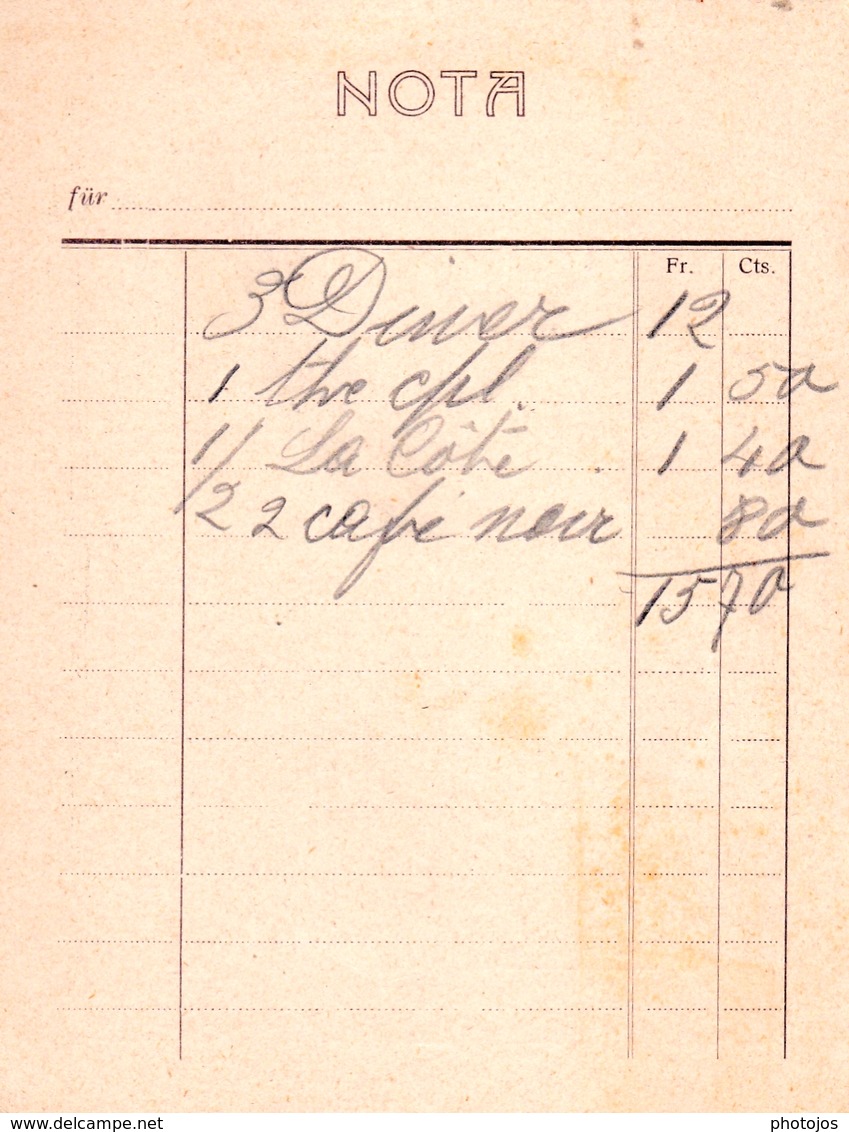 NOTA
für
Fr. Cts.
3 Diner 12
1 the cpl. 1 50
1/2 La Côte 1 40
2 café noir 80
15 70
www.delcampe.net photojos